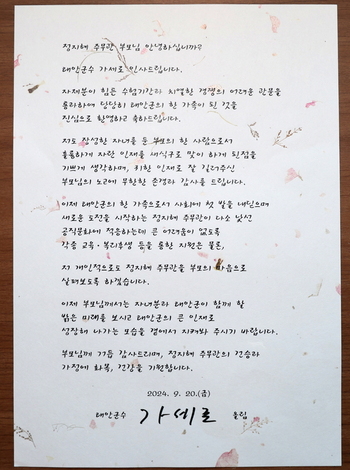 정지혜 주무관 부모님 안녕하십니까?
태안군수 가세로 인사드립니다.
자제분이 힘든 수험기간과 치열한 경쟁의 어려운 관문을
통과하여 당당히 태안군의 한 가족이 된 것을
진심으로 환영하고 축하드립니다.
저도 장성한 자녀를 둔 부모의 한 사람으로서
훌륭하게 자란 인재를 새식구로 맞이 하게 된점을
기쁘게 생각하며, 귀한 인재로 잘 길러주신
부모님의 노고에 무한한 존경과 감사를 드립니다.
이제 태안군의 한 가족으로서 사회에 첫 발을 내딛으며
새로운 도전을 시작하는 정지혜 주무관이 다소 낯선
공직문화에 적응하는데 큰 어려움이 없도록
각종 교육·복리후생 등을 통한 지원은 물론,
저 개인적으로도 정지혜 주무관을 부모의 마음으로
살펴보도록 하겠습니다.
이제 부모님께서는 자녀분과 태안군이 함께 할
밝은 미래를 보시고 태안군의 큰 인재로
성장해 나가는 모습을 곁에서 지켜봐 주시기 바랍니다.
부모님께 거듭 감사드리며, 정지혜 주무관의 건승과
가정에 화목, 건강을 기원합니다.
2024. 9. 20.(금)
태안군수 가세로 올림